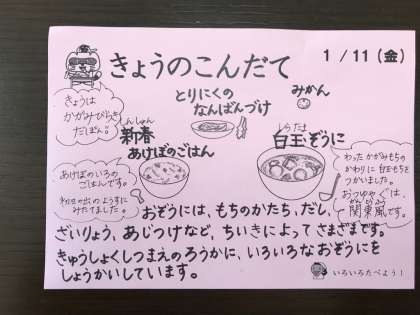 きょうのこんだて
1/11(金)
きょうは
かがみびらき
だしぽん。
とりにくの
なんばんづけ
みかん
しんしゅん
新春
あけぼのごはん
しらたま
白玉ぞうに
あけぼのいろの
ごはんです。
初日の出のように
みたてました。
わったかがみもちの
かわりに白玉もちを
つかいました。
おつゆなどは、
関東風です。
おぞうには、もちのかたち、だし、
ざいりょう、あじつけなど、ちいきによってさまざまです。
きゅうしょくしつまえのろうかに、いろいろなおぞうにを
しょうかいしています。
いろいろたべよう!